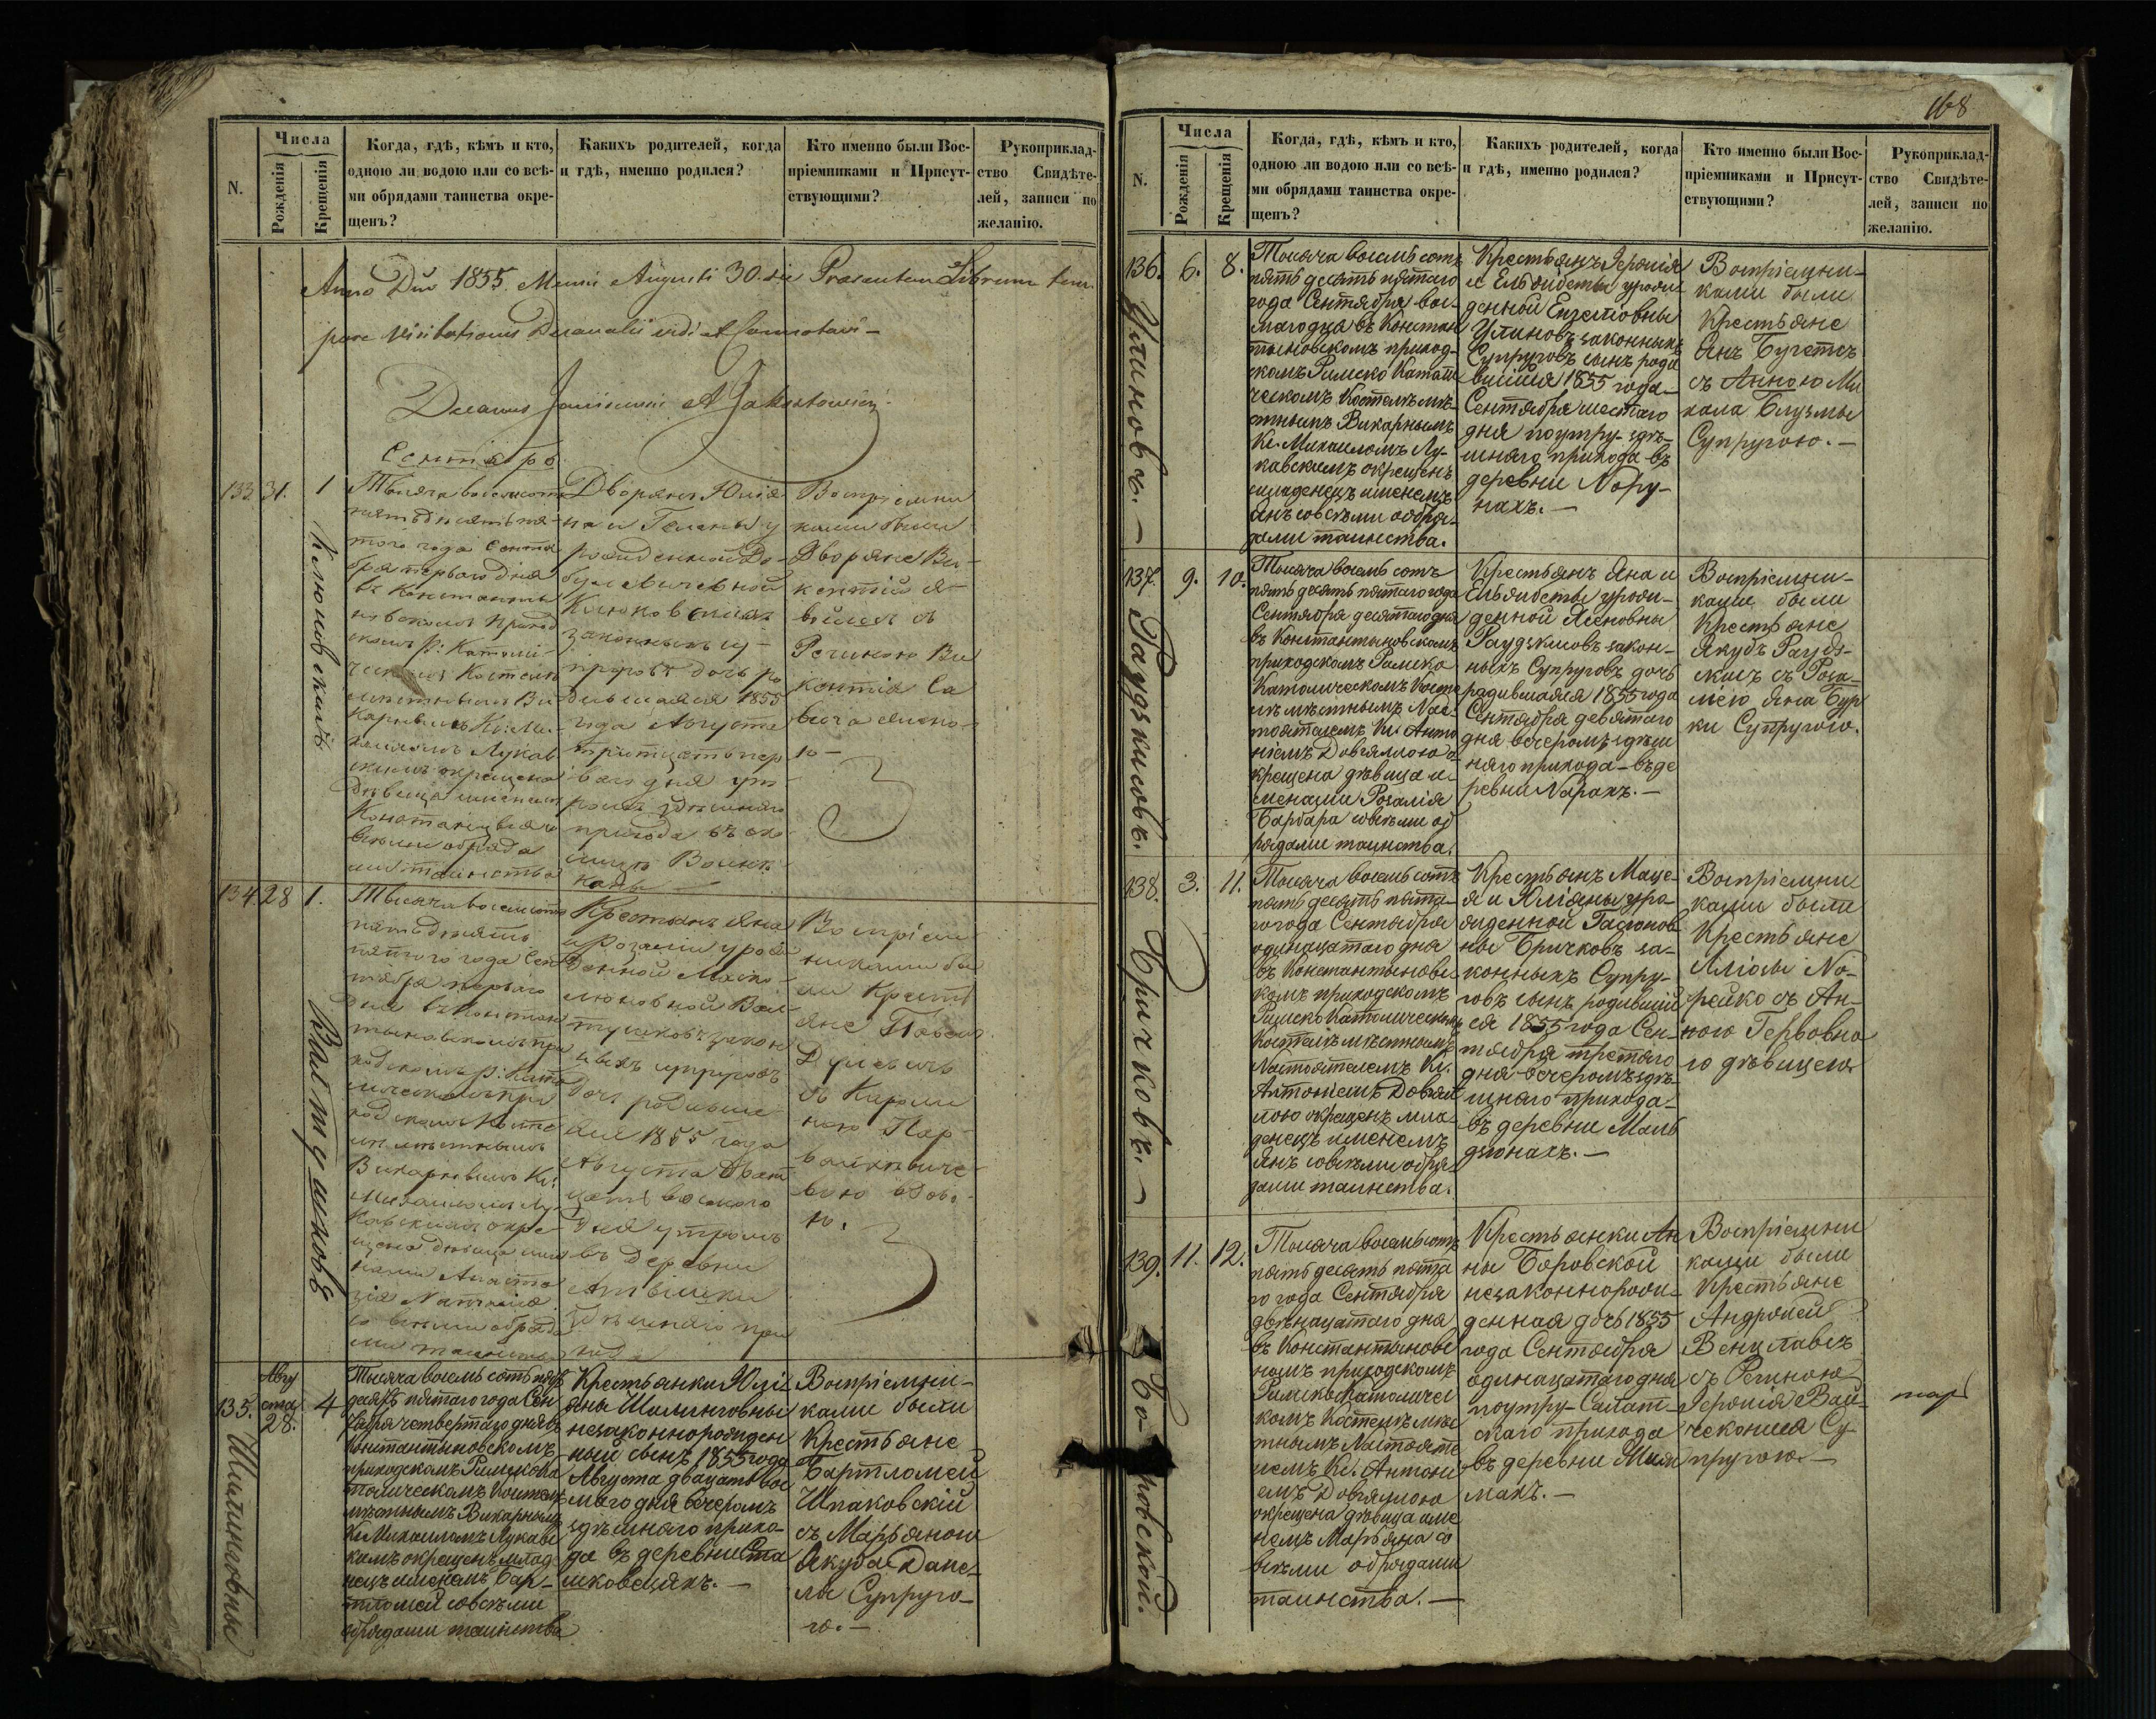 N.
Числа
Рожденія
Крещенія
Когда, гдѣ, кѣмъ и кто,
одною ли водою или со всѣ-
ми обрядами таинства окре-
щенъ?
Какихъ родителей, когда
и гдѣ, именно родился?
Кто именно были Вос-
пріемниками и Присут-
ствующими?
Рукоприклад-
ство Свидѣте-
лей, записи по
желанію.
Anno Dni 1855 Mensis Augusti 30 die Praesentem Librum tem
pore Visitationis Decanalis vidi et
Decanus
133
31.
1
Тысяча восемсотъ
пятьдесятъ пя-
таго года Сентя
бря перваго дня
въ Константы
новскомъ Приход
скомъ Р: Католи-
ческомъ Костелѣ
мѣстнымъ Ви
карнымъ Кс: Ми-
хаиломъ Лукав
скимъ окрещена
дѣвица именемъ
Констанція со
всѣми обряда
ми таинства
Дворянъ Юлія
на и Гелены у
рожденной До-
Клюковскихъ
законныхъ су-
пруговъ дочь ро
дившаяся 1855
года Августа
тритцать пер
ваго дня ут
ромъ здѣшняго
прихода въ око
лицѣ
Воспріемни
ками были
Дворяне Ви-
кентій
съ
Региною Ви
кентія Са
134.
28
1.
Валтушковъ
Тысяча восемсотъ
пятьдесятъ
пятого года Сен
тября перваго
дня въ Констан
тыновскомъ при
ходскомъ Р: Като
лическомъ при
ходскомъ Косте
лѣ мѣстнымъ
Викарнымъ Кс:
Михаиломъ Лу-
кавскимъ окре-
щена дѣвица име
нами Анаста
зія Наталія
со всѣми обряда
ми таинства
Крестьянъ Яна
и Розаліи урож
денной
Вал-
тушковъ закон
ныхъ супруговъ
дочь родивша-
яся 1855 года
Августа двад
цать восмого
дня утромъ
въ деревни
здѣшняго при
хода
Воспріем
никами бы
ли Кресть
яне Павелъ
съ Кароли
ною Пар-
вдово-
ю.
135.
Авгу
ста
28.
4
Шалинговны
Тысяча восемь сотъ пять
десятъ пятаго года Сен
тября четвертаго дня въ
Константыновскомъ
приходскомъ Римско Ка
толическомъ Костелѣ
мѣстнымъ Викарнымъ
Кс. Михаиломъ Лукавс
кимъ окрещенъ млад-
нецъ именемъ Бар-
тломей совсѣми
обрядами таинства
Крестьянки Юлі
яны Шалинговны
незаконнорожден
ный сынъ 1855 года
Августа двацать вос
маго дня вечеромъ
здѣшняго прихо-
да въ деревни Ста
шковщизнъ. —
Воспріемни-
ками были
Крестьяне
Бартломей
Шпаковскій
съ Марьяною
Якуба Дане-
лы Супруго-
ю. —
168
N.
Числа
Рожденія
Крещенія
Когда, гдѣ, кѣмъ и кто,
одною ли водою или со всѣ-
ми обрядами таинства окре-
щенъ?
Какихъ родителей, когда
и гдѣ, именно родился?
Кто именно были Вос-
пріемниками и Присут-
ствующими?
Рукоприклад-
ство Свидѣте-
лей, записи по
желанію.
136.
6.
8.
Улиновъ. —
Тысяча восемь сотъ
пять десятъ пятаго
года Сентября вос-
маго дня въ Констан
тыновскомъ приход-
скомъ Римско Католи
ческомъ Костелѣ мѣ-
стнымъ Викарнымъ
Кс. Михаиломъ Лу-
кавскимъ окрещенъ
младенецъ именемъ
Янъ совсѣми обря-
дами таинства.
Крестьянъ Іеронія
и Ельжбеты урож
денной
Улиновъ законныхъ
Супруговъ сынъ роди
вшійся 1855 года
Сентября шестаго
дня поутру здѣ-
шняго прихода въ
деревни Нору-
нахъ. —
Воспріемни-
ками были
Крестьяне
Янъ
съ Анною Ми
хала Блузмы
Супругою. —
137.
9.
10.
Раудзкисовъ.
Тысяча восемь сотъ
пять десятъ пятаго года
Сентября десятаго дня
въ Константыновскомъ
приходскомъ Римско
Католическомъ Косте
лѣ мѣстнымъ Нас-
тоятелемъ Кс. Анто
ніемъ Довгяллою о
крещена дѣвица и-
менами Розалія
Барбара совсѣми об
рядами таинства.
Крестьянъ Яна и
Ельжбеты урож-
денной Ясеновны
Раудзкисовъ закон-
ныхъ Супруговъ дочь
родившаяся 1855 года
Сентября девятаго
дня вечеромъ здѣш
няго прихода въ де
ревни Нарахъ. —
Воспріемни-
ками были
Крестьяне
Якубъ Раудз-
кисъ съ Роза-
ліею Яна Бур
ки Супругою.
138.
3.
11.
Бричковъ. —
Тысяча восемь сотъ
пять десятъ пята-
го года Сентября
одинацатаго дня
въ Константыновс-
комъ приходскомъ
Римско Католическомъ
Костелѣ мѣстнымъ
Настоятелемъ Кс.
Антоніемъ Довгял
лою окрещенъ мла-
денецъ именемъ
Янъ совсѣми обря-
дами таинства.
Крестьянъ Маце-
я и Юліяны уро-
жденной Гасюнов
ны Бричковъ за-
конныхъ Супру-
говъ сынъ родивший
ся 1855 года Сен-
тября третяго
дня вечеромъ здѣ-
шняго прихода
въ деревни Маль
дзюнахъ. —
Воспріемни
ками были
Крестьяне
Но-
рейко съ Ан-
ною Герво́вно
ю дѣвицею
139.
11.
12.
Бо-
ровской.
Тысяча восемь сотъ
пять десятъ пята
го года Сентября
двѣнацатаго дня
въ Константынове
комъ приходскомъ
Римско Католичес
комъ Костелѣ мѣс
тнымъ Настояте
лемъ Кс. Антоні
емъ Довгяллою
окрещена дѣвица име
немъ Марьяна со
всѣми обрядами
таинства. —
Крестьянки Ан
ны Боровской
незаконнорож-
денная дочь 1855
года Сентября
одинацатаго дня
поутру
скаго прихода
въ деревни
Воспріемни
ками были
Крестьяне
Андржей
Венцлавъ
съ Региною
Іеронія Вай-
Су-
пругою. —